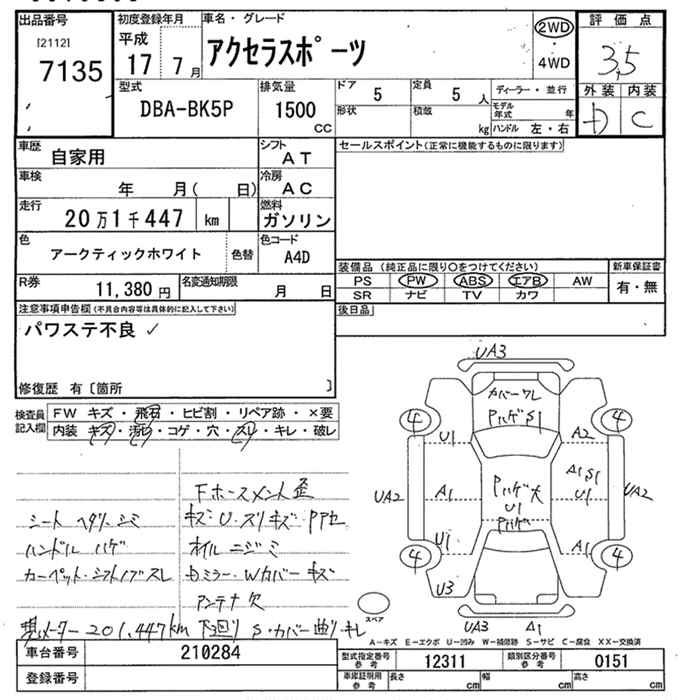 出品番号
[2112]
7135
初度登録年月
平成
17 7月
車名・グレード
アクセラスポーツ
2WD
・
4WD
評価点
3,5
外装 内装
D C
型式
DBA-BK5P
排気量
1500
cc
ドア 5
定員 5 人
形状
積載 kg
ディーラー・並行
モデル年式 年
ハンドル 左・右
車歴
自家用
シフト
AT
セールスポイント(正常に機能するものに限ります)
車検
年 月( 日)
冷房
AC
走行
20万1千447 km
燃料
ガソリン
色
アークティックホワイト
色替
色コード
A4D
R券
11,380円
名変通知期限
月 日
装備品(純正品に限り○をつけてください)
PS PW ABS エアB AW
SR ナビ TV カワ
新車保証書
有・無
注意事項申告欄(不具合内容等は具体的に記入して下さい)
パワステ不良 ✓
後日品
修復歴 有〔箇所 〕
検査員記入欄
FW キズ・飛石・ヒビ割・リペア跡・×要
内装 キズ・汚れ・コゲ・穴・スリ・キレ・破レ
Fホースメント歪
シート ヘタリ・シミ
キズ・U・スリキズ・Pアセ
ハンドル ハゲ
オイルニジミ
カーペット・シフトノブスレ
ミラー・Wカバーキズ
アンテナ欠
メーター201,447km 下回りS・カバー曲り・キレ
UA3
カバーワレ
PハゲS1
4 4
U1 A2
UA2 A1 Pハゲ大 A1 S1 UA2
U1 U1
Pハゲ
U1 A1
4 4
U3
UA3 A1
スペア
A-キズ E-エクボ U-凹み W-補修跡 S-サビ C-腐食 XX-交換済
車台番号
210284
登録番号
型式指定番号
参考
12311
類別区分番号
参考
0151
車庫証明用
参考
長さ cm
幅 cm
高さ cm